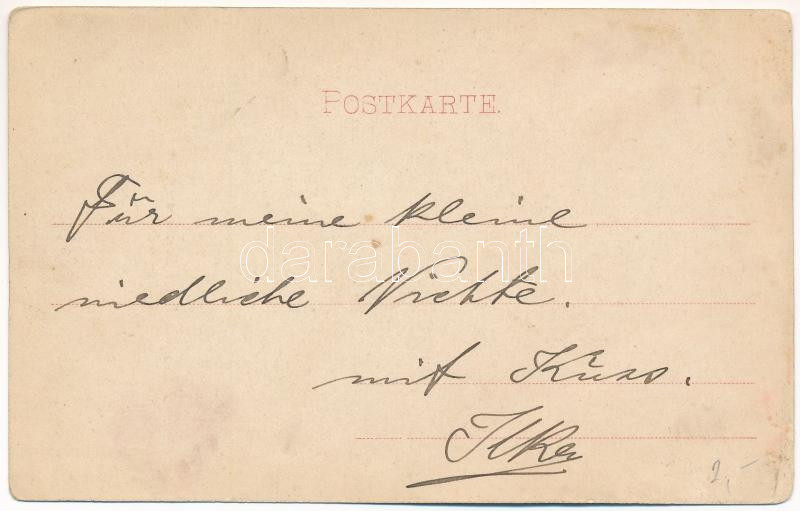 POSTKARTE.
Für meine kleine
darabanth
niedliche Nichte.
mit Kuss.
Ilka
2,-